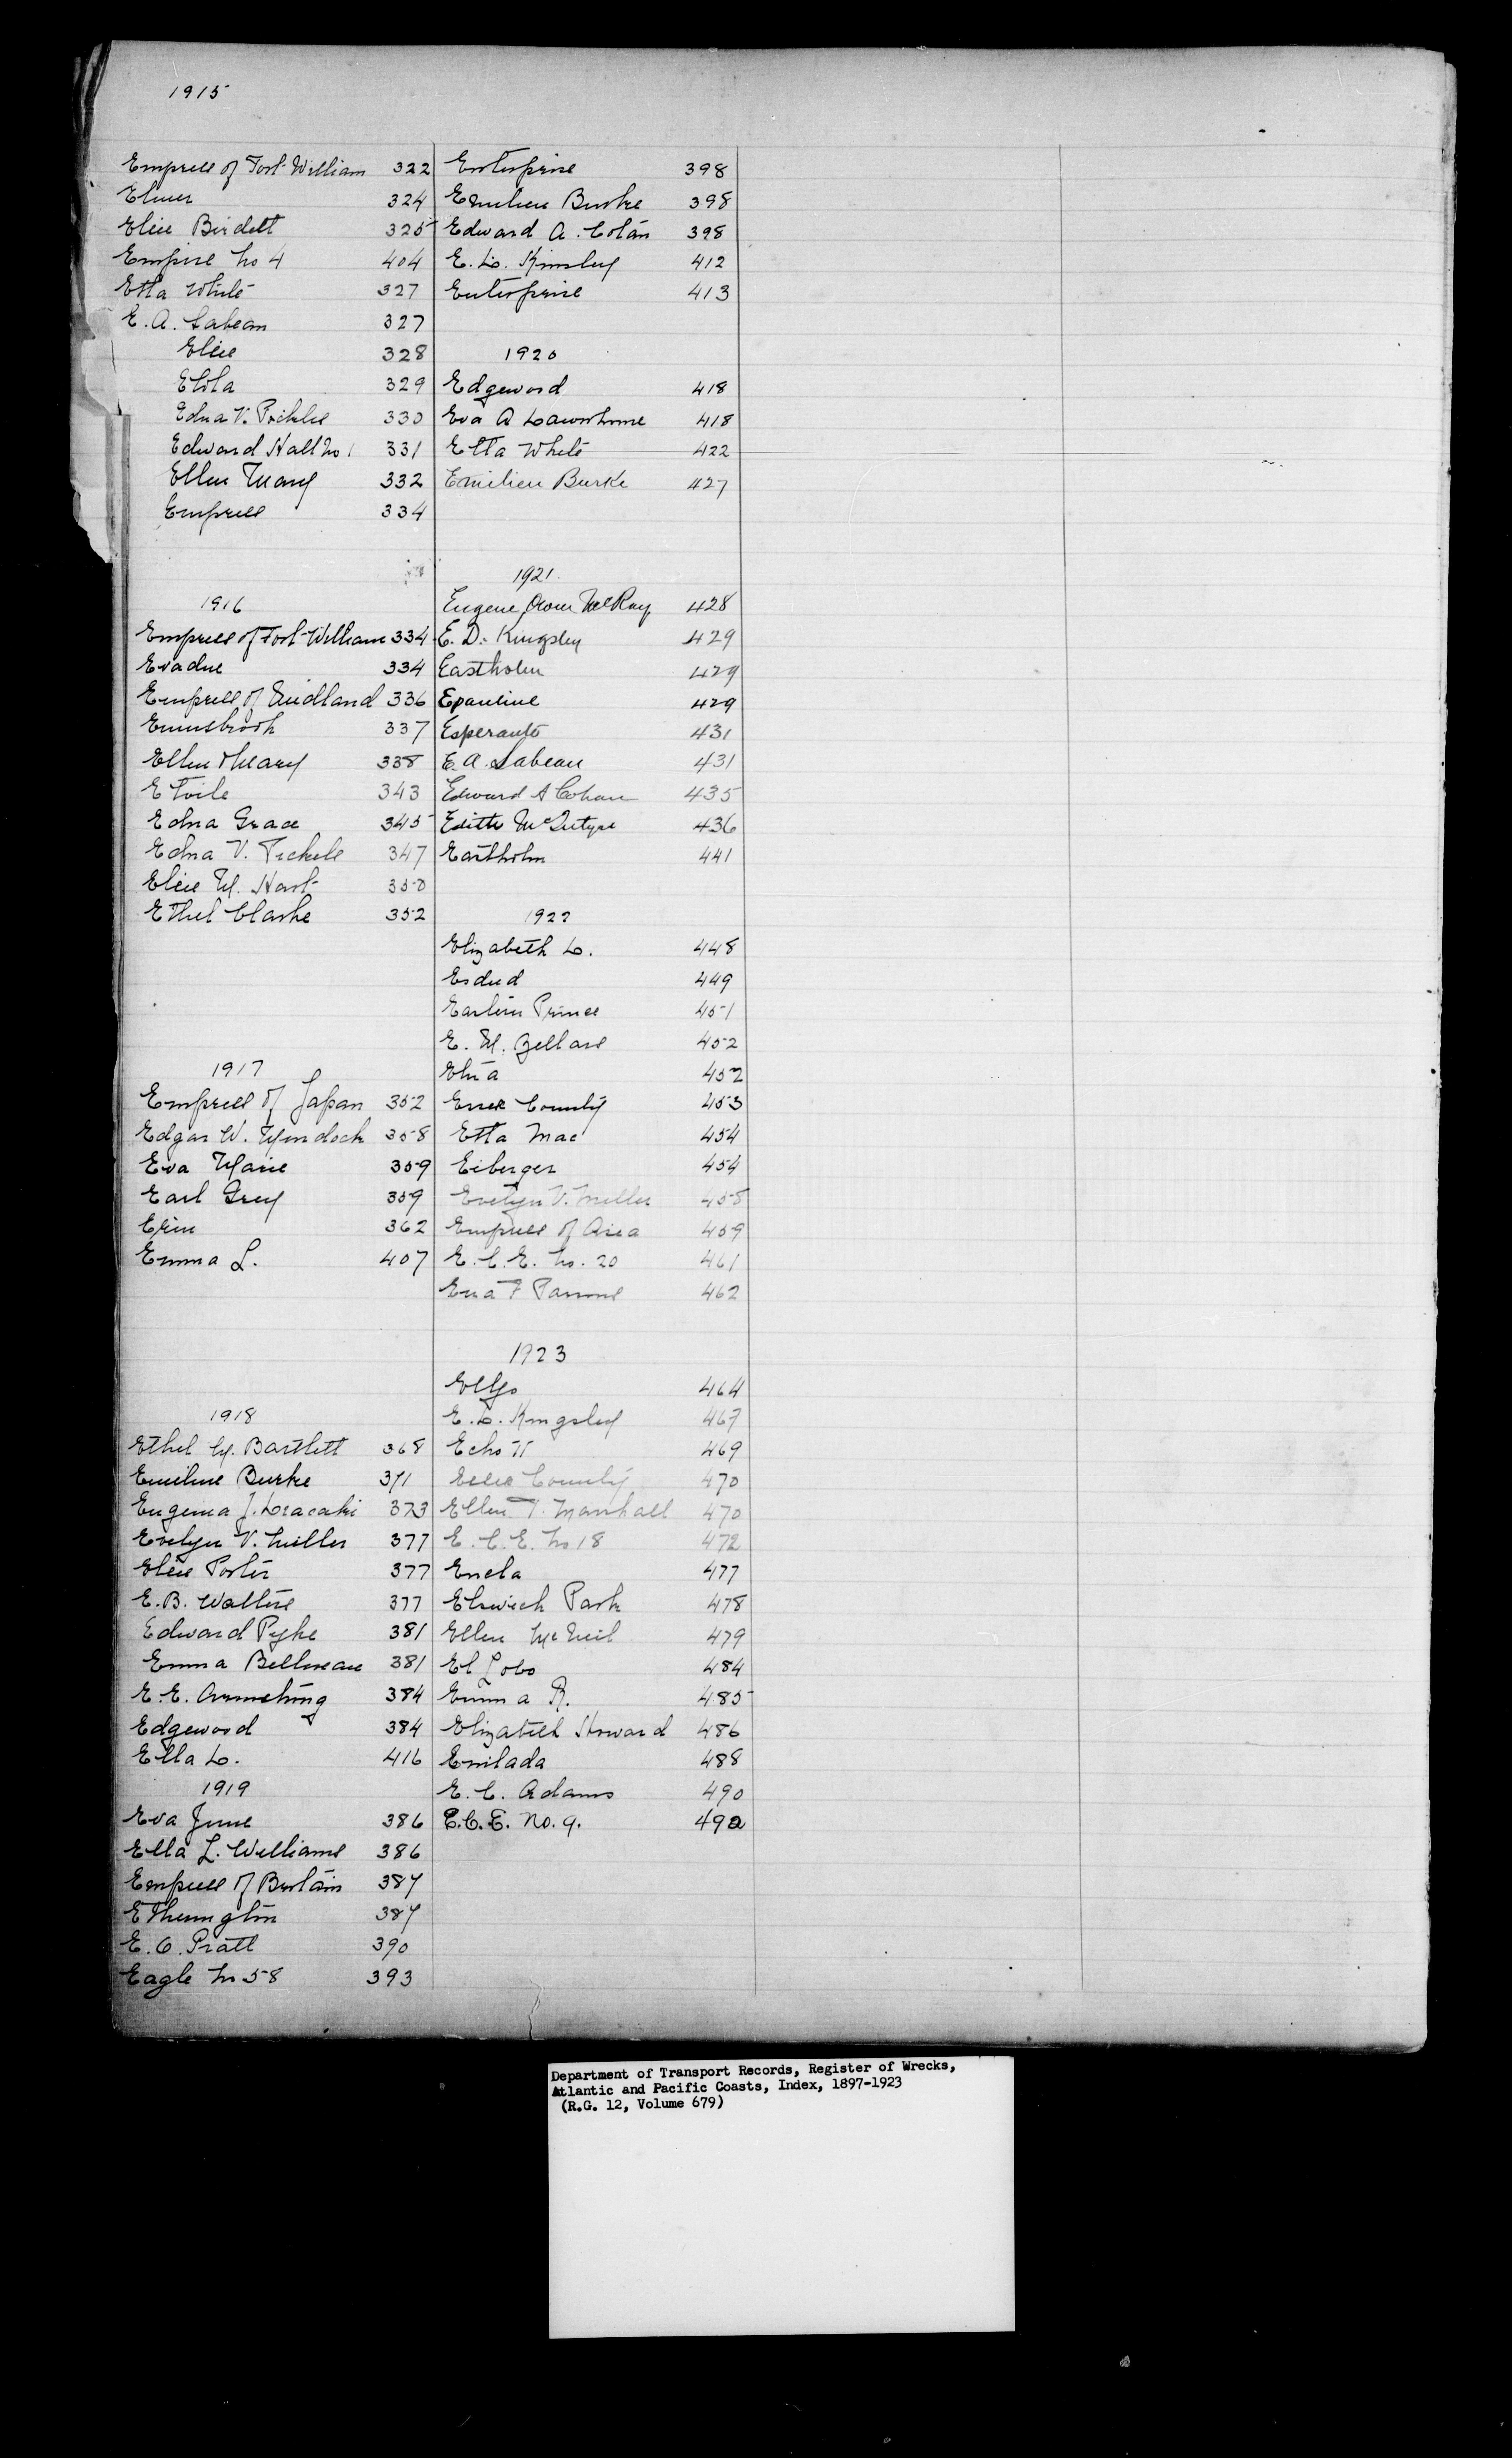 1915
Empress of Fort William 322
Elmer 324
Elsie Birdett 325
Empire No 4 404
Etta White 327
E. A. Sabean 327
Elsie 328
329
Edna V. Pickles 330
Edward Hall No 1 331
Ellen Mary 332
Empress 334
1916
Empress of Fort William 334
Evadne 334
Empress of Midland 336
337
Ellen & Mary 338
Etoile 343
Edna Grace 345
Edna V. Pickels 347
Elsie M. Hart 350
Ethel Clarke 352
1917
Empress of Japan 352
Edgar W. Murdock 358
Eva Marie 359
Earl Grey 359
Erin 362
Emma L. 407
1918
Ethel M. Bartlett 368
Emiline Burke 371
Eugenia J. 373
Evelyn V. Miller 377
Elsie Porter 377
E. B. Walters 377
Edward Pyke 381
Emma Belliveau 381
E. E. Armstrong 384
Edgewood 384
Ella L. 416
1919
Eva June 386
Ella L. Williams 386
Empress of Britain 387
Etherington 387
E. O. Pratt 390
Eagle No 58 393
Enterprise 398
Emilien Burke 398
Edward A. Colan 398
E. D. Kinsley 412
Enterprise 413
1920
Edgewood 418
Eva A 418
Etta White 422
Emilien Burke 427
1921
Eugene Owen McKay 428
E. D. Kingsley 429
Eastholm 429
Epauline 429
Esperanto 431
E. A. Sabean 431
Edward A Cohan 435
Edith McIntyre 436
Eastholm 441
1922
Elizabeth L. 448
449
Eastern Prince 451
E. M. Zellars 452
452
Essex County 453
Etta Mac 454
Eiberger 454
Evelyn V. Miller 458
Empress of Asia 459
E. C. E. No. 20 461
Eva F Parsons 462
1923
464
E. D. Kingsley 467
Echo II 469
Essex County 470
Ellen T. Marshall 470
E. C. E. No 18 472
477
Elswick Park 478
Ellen McNeil 479
El Lobo 484
Emma R. 485
Elizabeth Howard 486
Emilada 488
E. C. Adams 490
E.C.E. No. 9. 492
Department of Transport Records, Register of Wrecks,
Atlantic and Pacific Coasts, Index, 1897-1923
(R.G. 12, Volume 679)